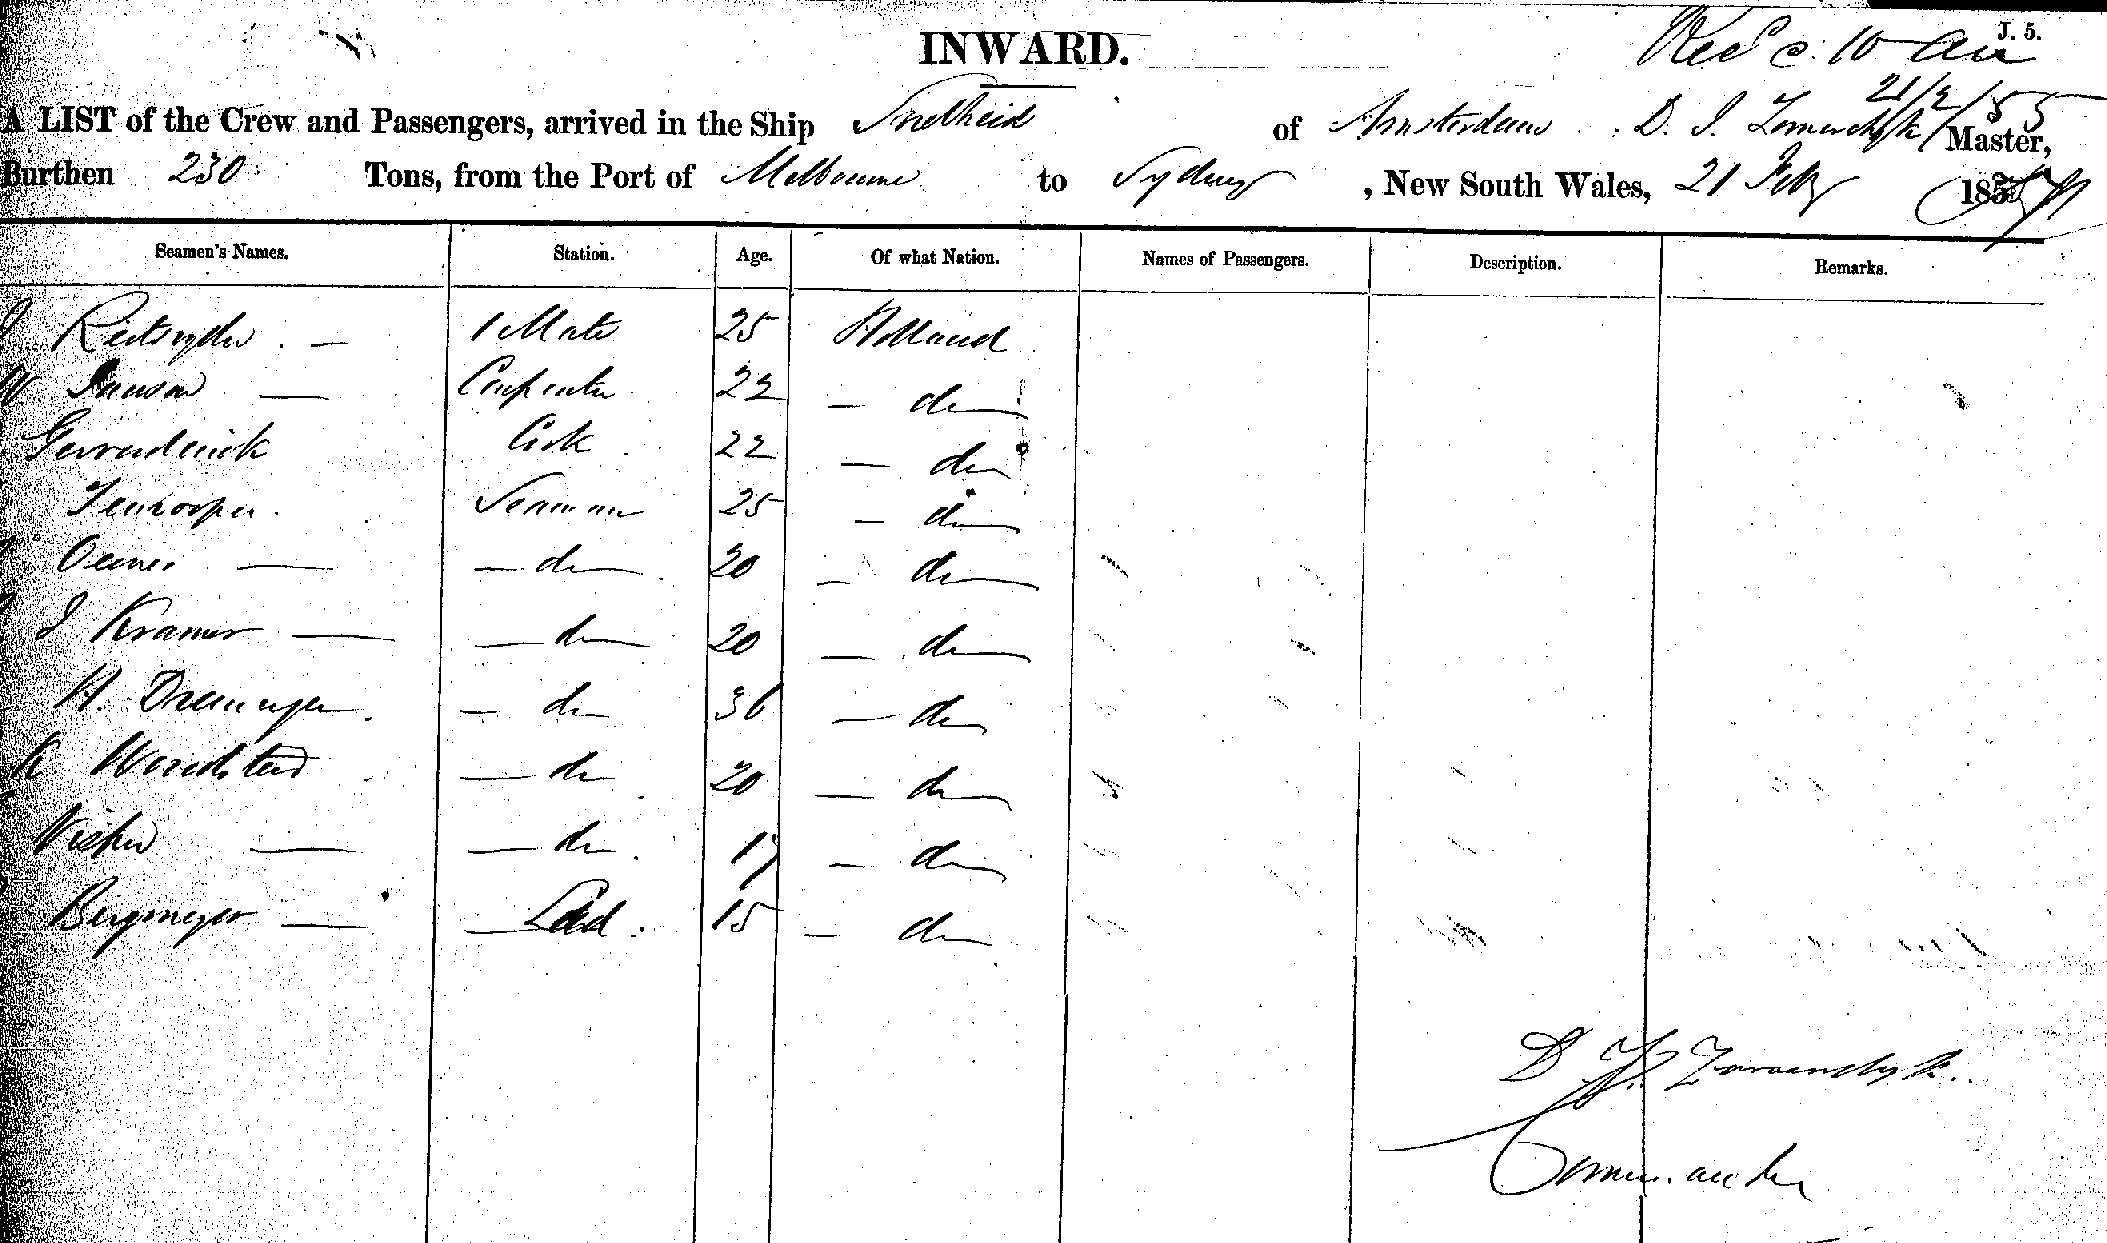 INWARD.
J. 5.
Recd 10 am
21/2/55
A LIST of the Crew and Passengers, arrived in the Ship Snelheid of Amsterdam D. J. Master,
Burthen 230 Tons, from the Port of Melbourne to Sydney, New South Wales, 21 Feby 1855
Seamen's Names. Station. Age. Of what Nation. Names of Passengers. Description. Remarks.
1 Mate 25 Holland
W Jansen — Carpenter 22 — do
Cook 22 — do
Seaman 25 — do
— do 20 — do
J Kramer — — do 20 — do
H. — do 36 — do
K — do 20 — do
— — do 17 — do
Bergmeyer — — Lad. 15 — do
D J.
Commander